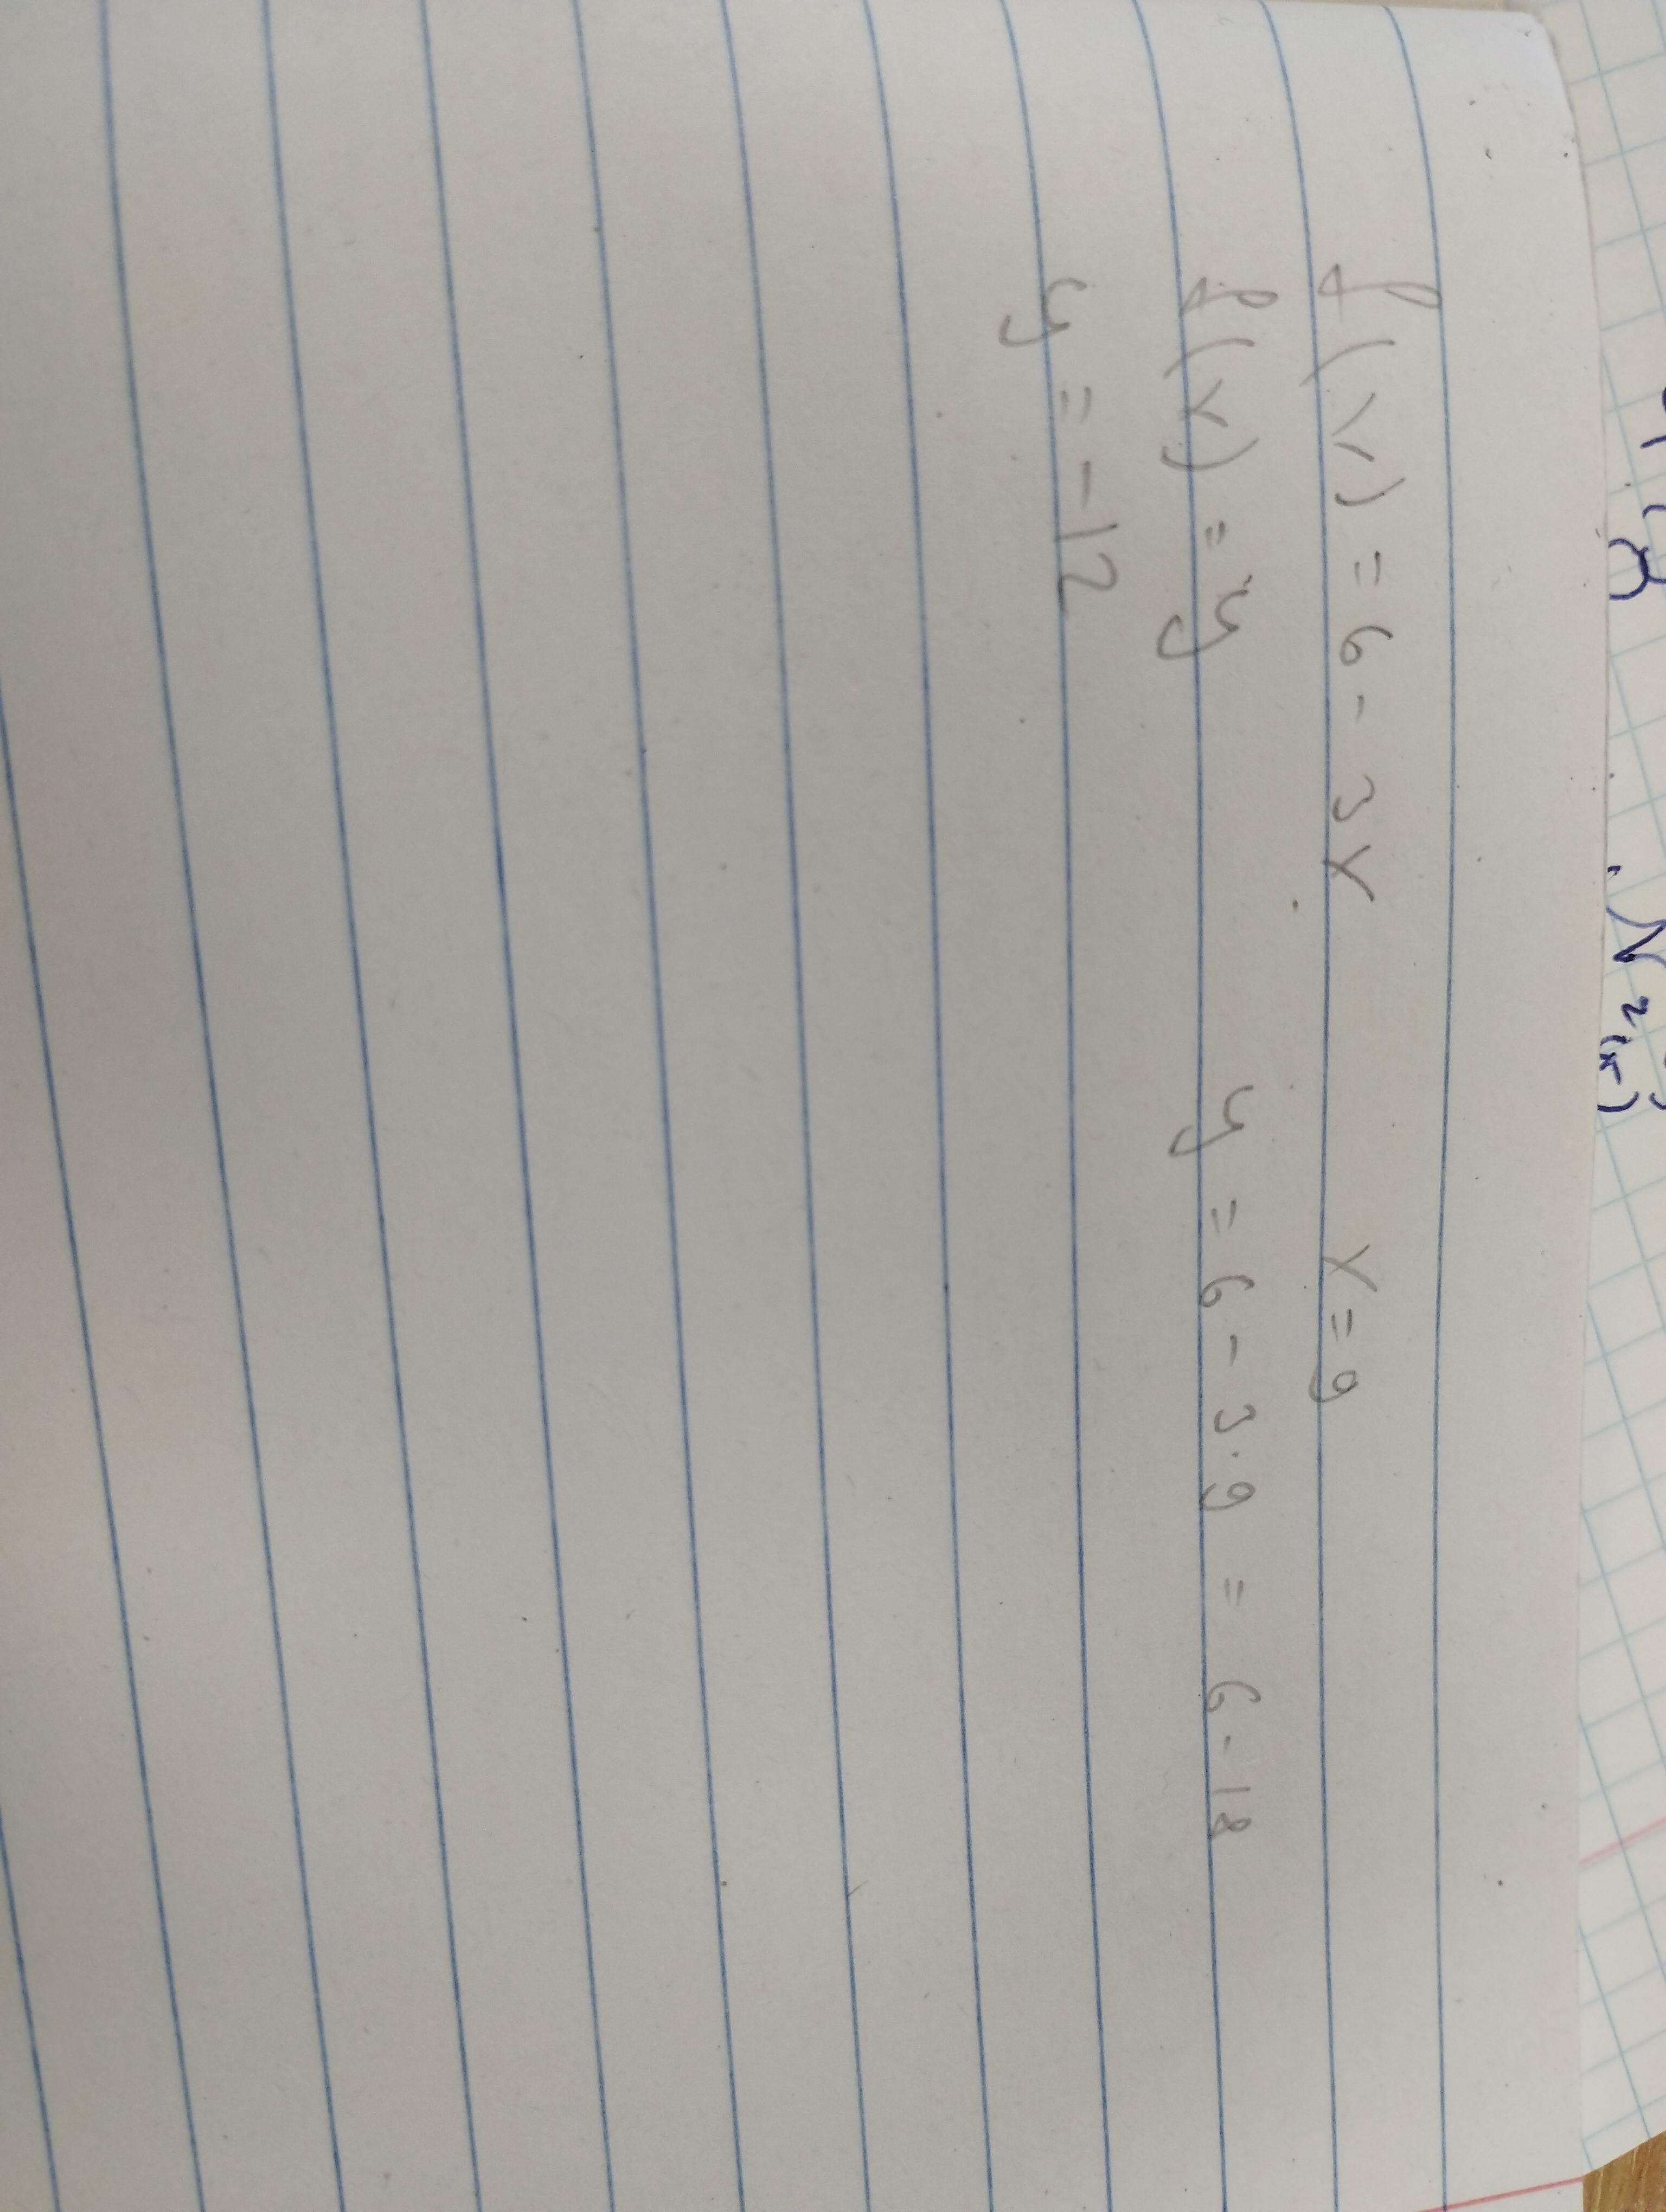 f(x) = 6 - 3x x = 9
f(x) = y y = 6 - 3·9 = 6 - 18
y = -12